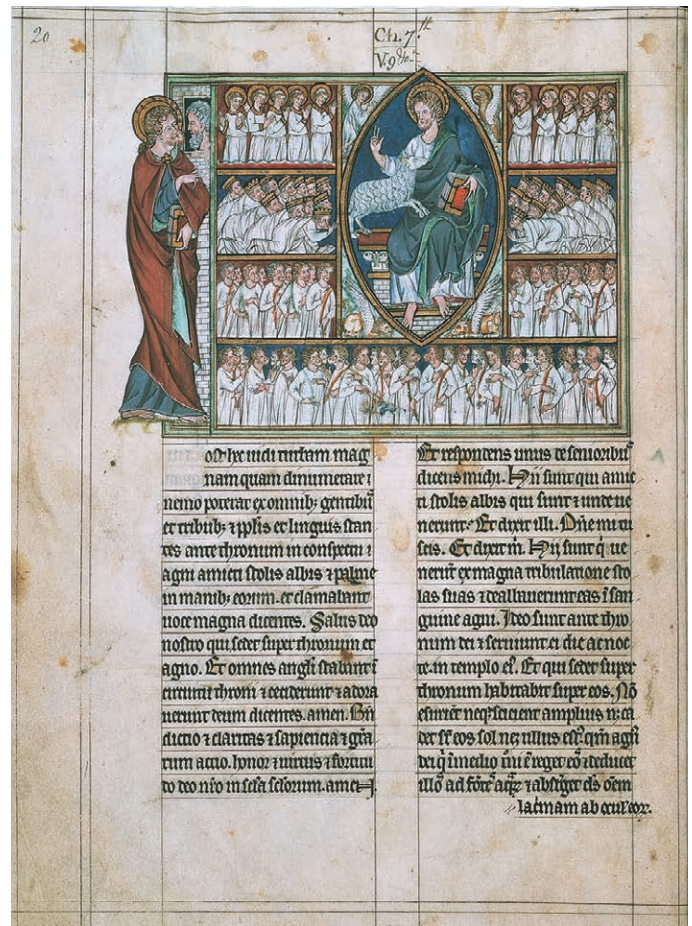 20
Ch. 7th
V. 9 &c
ost hec uidi turbam mag
nam quam dinumerare
nemo poterat ex omnib; gentibus
et tribub; ⁊ pplis et linguis stan
tes ante thronum in conspectu
agni amicti stolis albis ⁊ palme
in manib; eorum. et clamabant
uoce magna dicentes. Salus deo
nostro qui sedet super thronum et
agno. Et omnes angli stabant i
circuitu throni ⁊ ceciderunt ⁊ adora
uerunt deum dicentes. amen. Bn
dictio ⁊ claritas ⁊ sapiencia ⁊ gra
rum actio. honor ⁊ uirtus ⁊ fortitu
do deo nro in scla sclorum. amen.
Et respondens unus de senioribus
dicens michi. Hii sunt qui amic
ti stolis albis qui sunt ⁊ unde ue
nerunt. Et dixi illi. Dne mi tu
scis. Et dixit m. Hii sunt q ue
nerunt ex magna tribulatione sto
las suas ⁊ deallauerunt eas i san
guine agni. Ideo sunt ante thro
num dei ⁊ seruiunt ei die ac noc
te in templo ei. Et qui sedet super
thronum habitabit super eos. No
esurient neq; scicient amplius n; ca
det sr eos sol neq; ullus est. qm agn
dei q i medio
illos ad fontes ⁊ absterget ds oem
lacrimam ab oculis eorum.